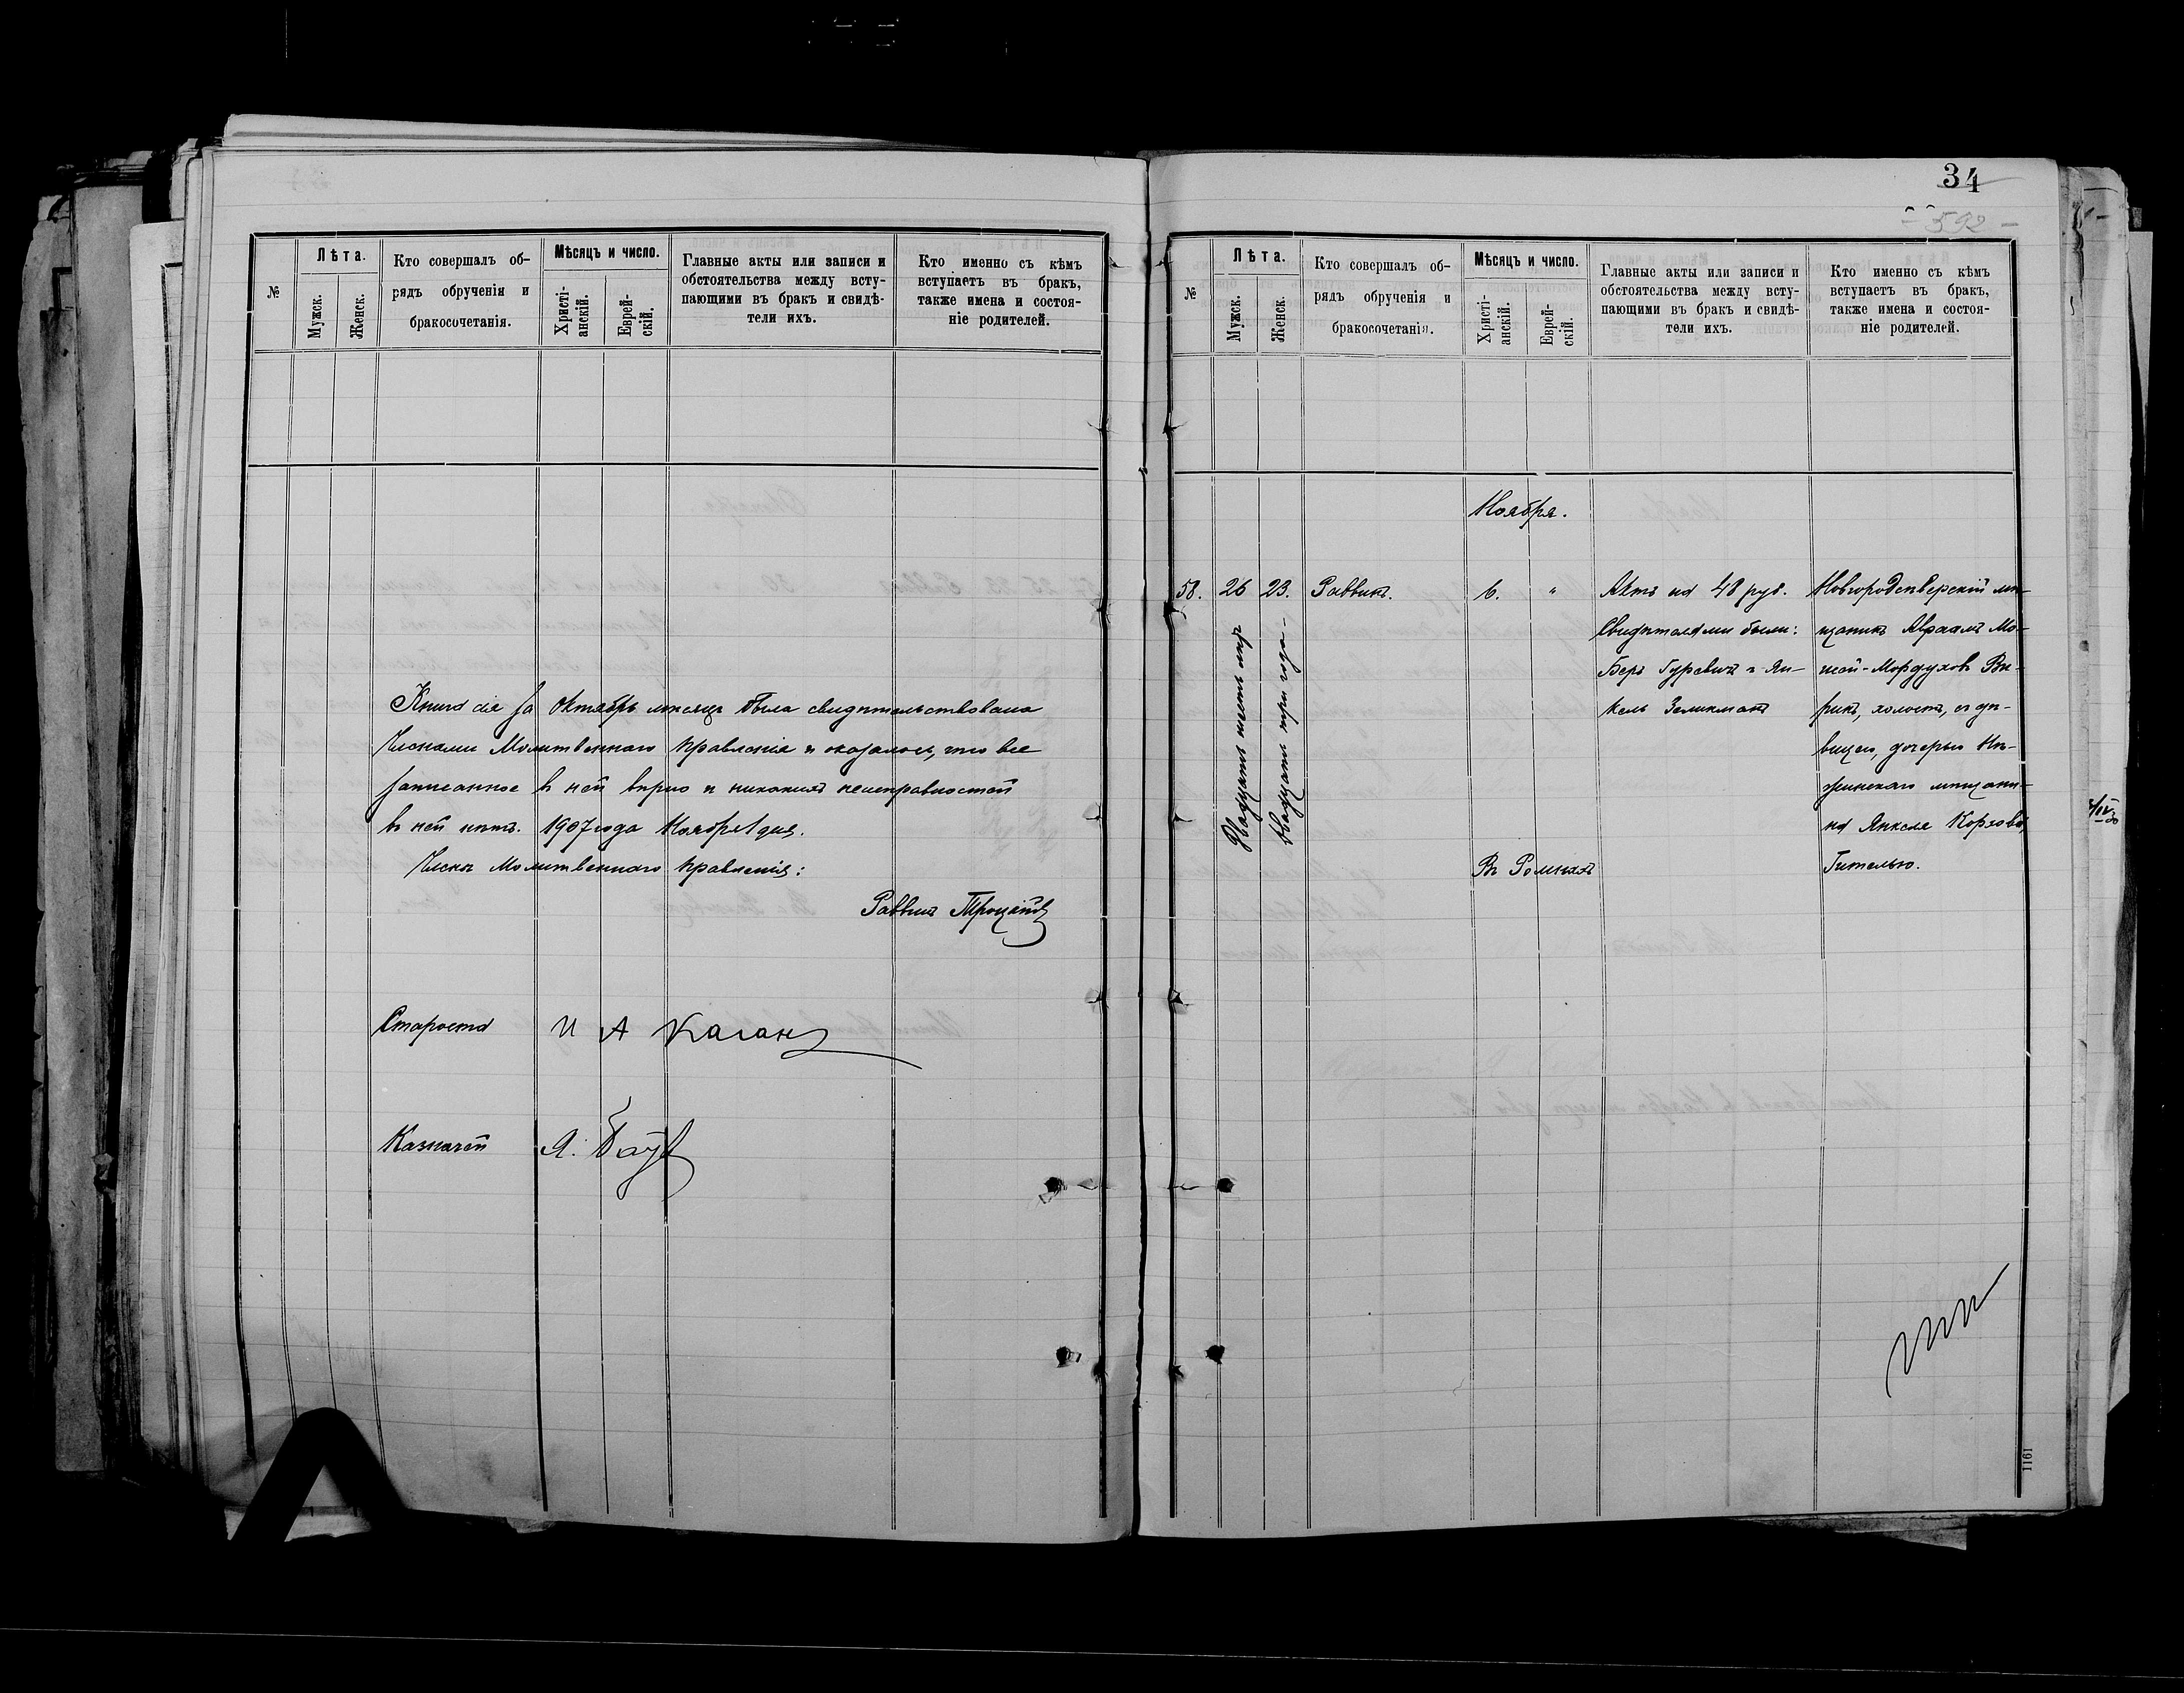 №
Лѣта.
Мужск.
Женск.
Кто совершалъ об-
рядъ обрученія и
бракосочетанія.
Мѣсяцъ и число.
Христі-
анскій.
Еврей-
скій.
Главные акты или записи и
обстоятельства между всту-
пающими въ бракъ и свидѣ-
тели ихъ.
Кто именно съ кѣмъ
вступаетъ въ бракъ,
также имена и состоя-
ніе родителей.
Книга сія за Октябрь мѣсяцъ была свидѣтельствована
Членами Молитвеннаго Правленія и оказалось, что все
записанное в ней вѣрно и никакихъ неисправностей
въ ней нѣтъ. 1907 года Ноября 1 дня.
Члены Молитвеннаго Правленія:
Раввинъ
Староста И А Каганъ
Казначей Я.
34
592
№
Лѣта.
Мужск.
Женск.
Кто совершалъ об-
рядъ обрученія и
бракосочетанія.
Мѣсяцъ и число.
Христі-
анскій.
Еврей-
скій.
Главные акты или записи и
обстоятельства между всту-
пающими въ бракъ и свидѣ-
тели ихъ.
Кто именно съ кѣмъ
вступаетъ въ бракъ,
также имена и состоя-
ніе родителей.
Ноября.
58.
26
Двадцать шесть лѣтъ
23.
Двадцать три года
Раввинъ.
6.
"
Въ Ромнахъ
Актъ на 48 руб.
Свидѣтелями были:
Беръ Гуревичъ и Ян-
кель Зеликманъ
Новгородсѣверскій мѣ-
щанинъ Абрамъ Мо-
исей-Мордуховъ Вы-
рикъ, холостъ, съ дѣ-
вицею, дочерью Нѣ-
жинскаго мѣщани-
на Янкеля Корзова,
Гителью.
1161